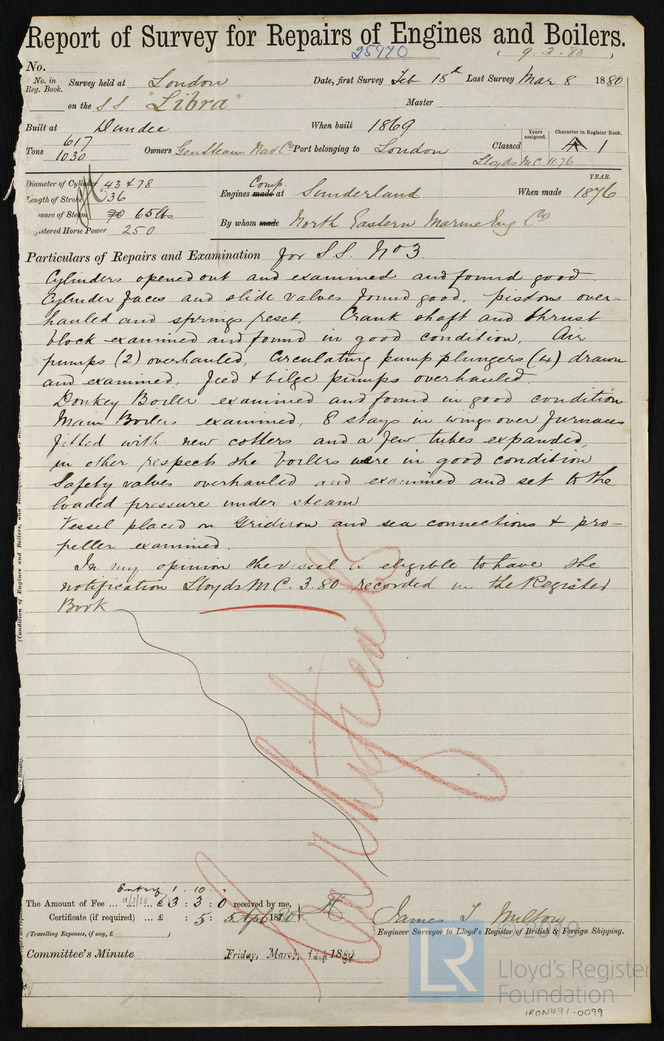 Report of Survey for Repairs of Engines and Boilers.
25970 (9.3.80)
No.
No. in Reg. Book. Survey held at London Date, first Survey Feb 18th Last Survey Mar 8 1880
on the SS "Libra" Master
Built at Dundee When built 1869 Years assigned. Character in Register Book.
Tons 617 1030 Owners Gen Steam Nav Co Port belonging to London Classed A 1
Lloyds MC 11.76
Diameter of Cylinder 43 & 78 Comp. YEAR.
Length of Stroke 36 Engines made at Sunderland When made 1876
ssure of Steam 70 65 lbs
istered Horse Power 250 By whom made North Eastern Marine Eng Co
Particulars of Repairs and Examination for S.S. No 3.
Cylinders opened out and examined and found good.
Cylinder faces and slide valves found good. pistons over-
hauled and springs reset. Crank shaft and thrust
block examined and found in good condition. Air
pumps (2) overhauled, Circulating pump plungers (4) drawn
and examined, feed & bilge pumps overhauled
Donkey Boiler examined and found in good condition
Main Boilers examined, 8 stays in wings over furnaces
fitted with new cotters and a few tubes expanded,
in other respects the boilers were in good condition
Safety valves overhauled and examined and set to the
loaded pressure under steam
Vessel placed on Gridiron and sea connections & pro-
peller examined.
In my opinion the vessel is eligible to have the
notification Lloyds MC. 3.80 recorded in the Register
Book
(Condition of Engines and Boilers, and
Entry 1. 10
The Amount of Fee ... £ 3 : 3 : 0 received by me,
Certificate (if required) ... £ : 5 : 5 Apl 1880
James T Milton
Engineer Surveyor to Lloyd's Register of British & Foreign Shipping.
(Travelling Expenses, if any, £ )
Committee's Minute Friday, March 12th 1880
LR
© 2019
Lloyd's Register
Foundation
IRON491-0099